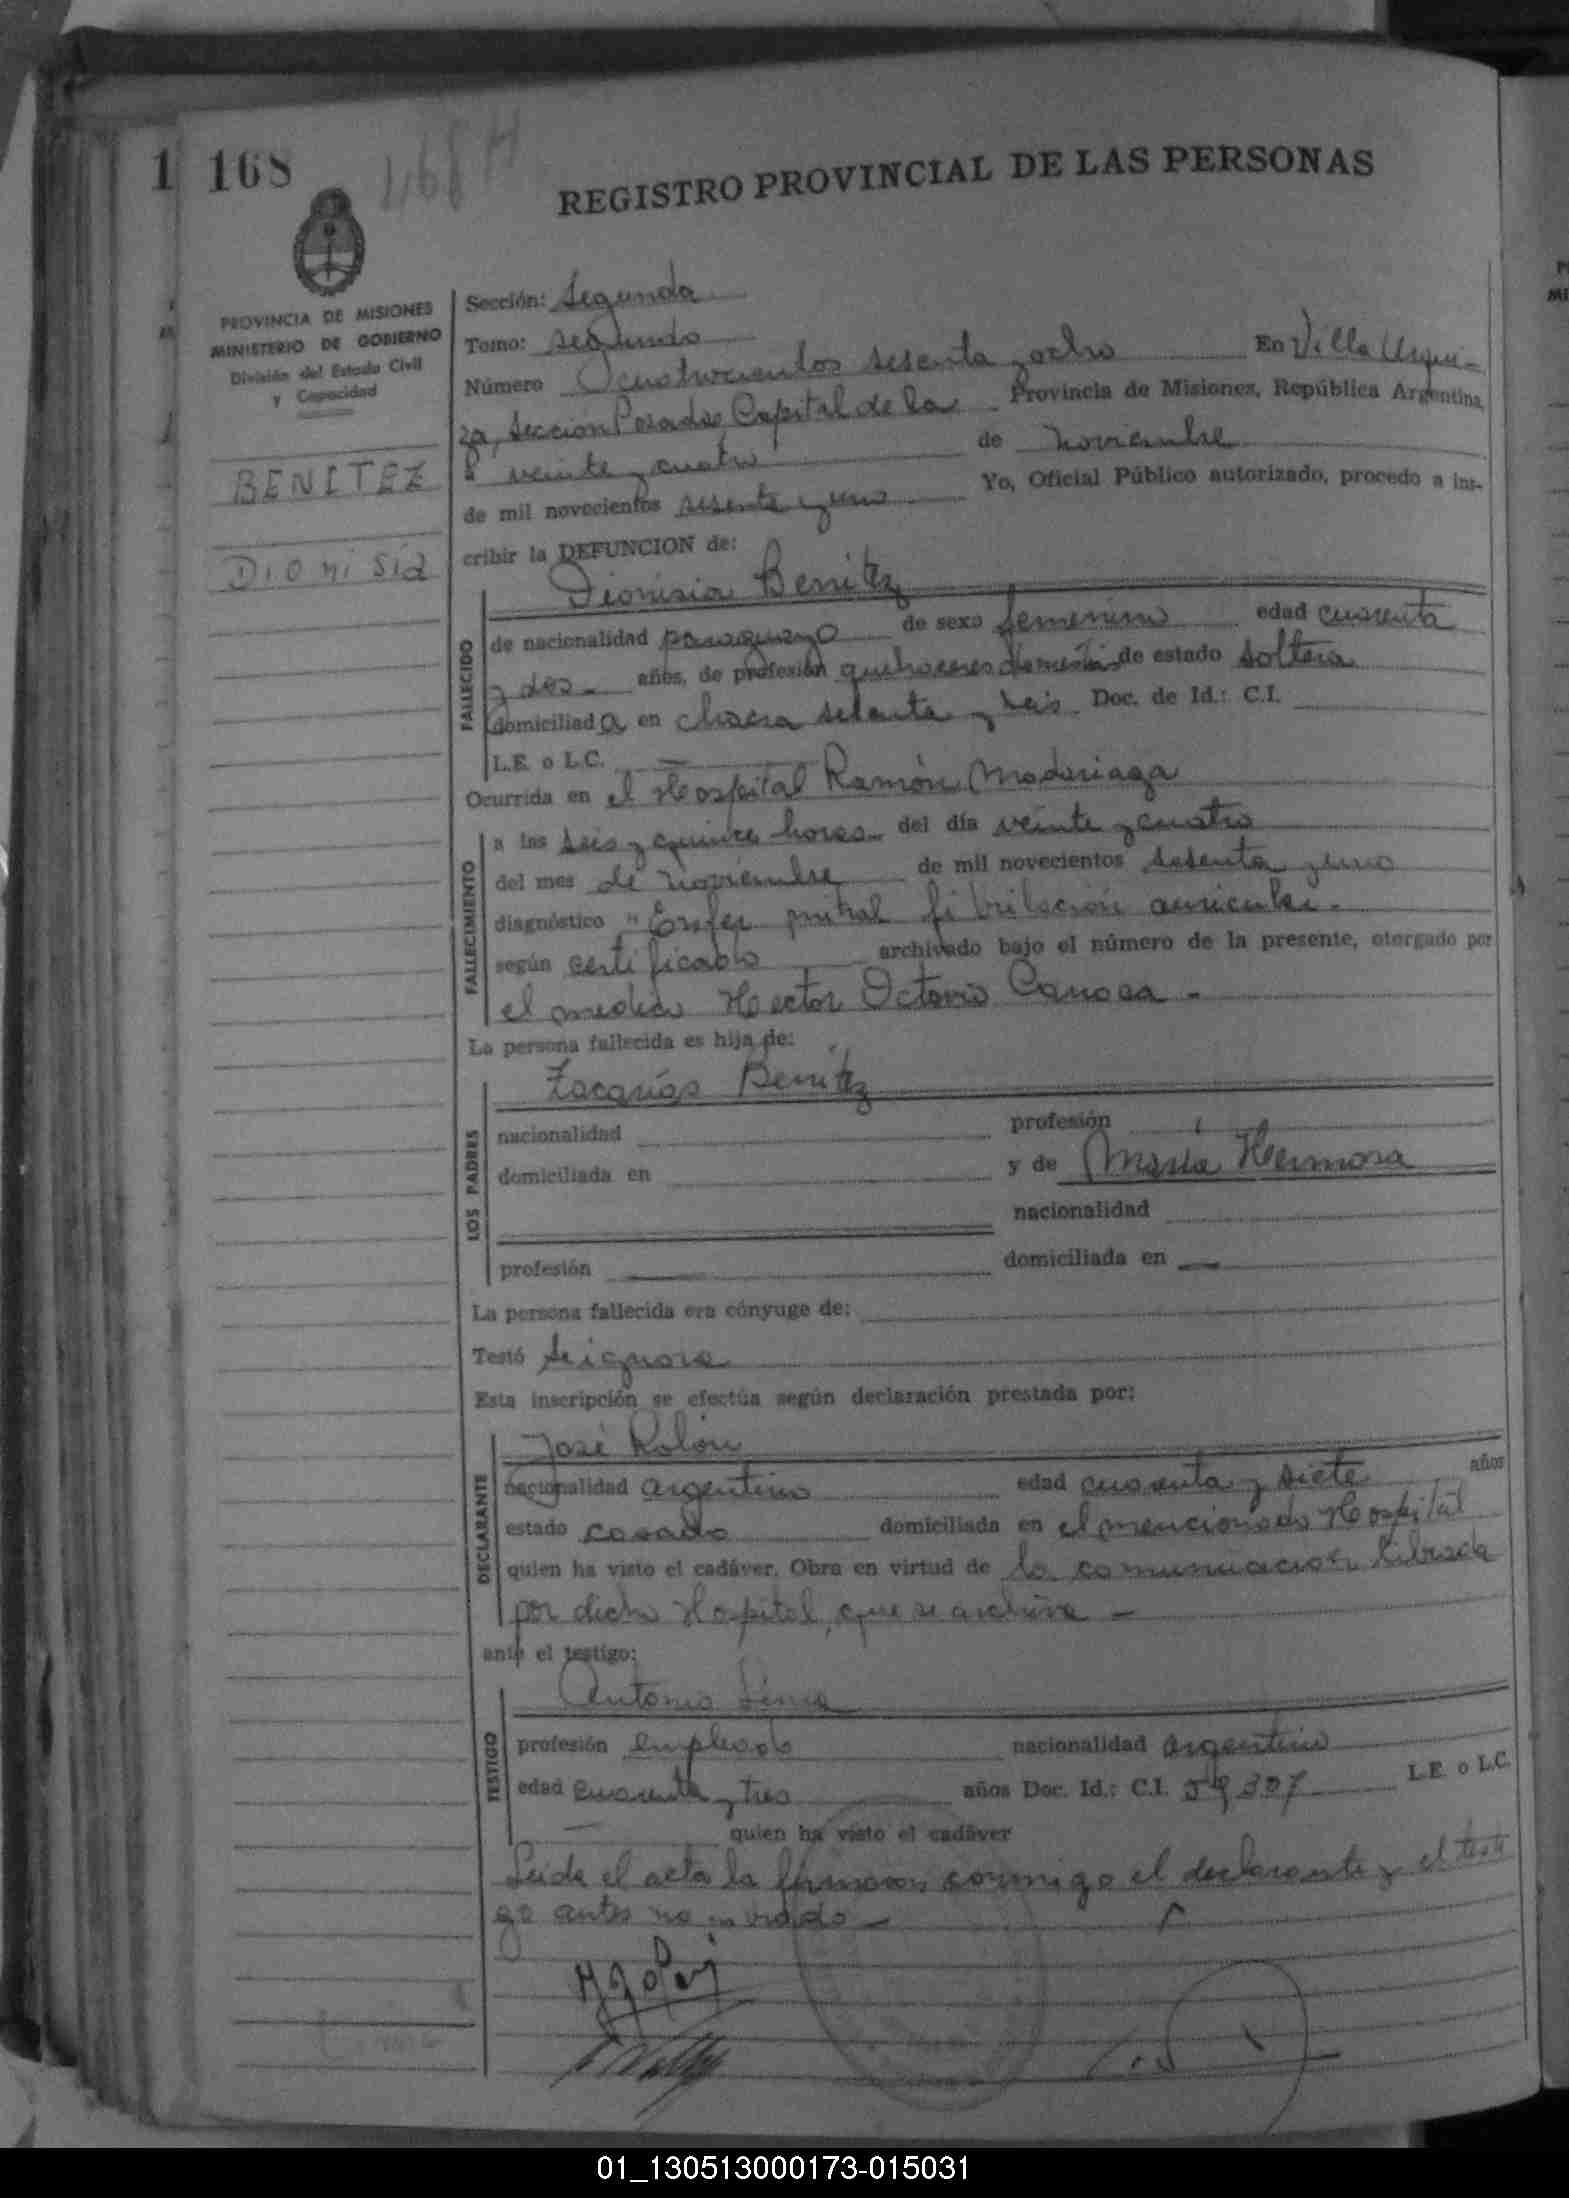 1 168
468 H
REGISTRO PROVINCIAL DE LAS PERSONAS
PROVINCIA DE MISIONES
MINISTERIO DE GOBIERNO
División del Estado Civil
y Capacidad
BENITEZ
Dionisia
Sección: Segunda
Tomo: segundo
Número cuatrocientos sesenta y ocho En Villa Urqui-
za, Sección Posadas Capital de la Provincia de Misiones, República Argentina,
a veinte y cuatro de noviembre
de mil novecientos sesenta y uno Yo, Oficial Público autorizado, procedo a ins-
cribir la DEFUNCION de:
Dionisia Benitez
FALLECIDO
de nacionalidad paraguaya de sexo femenino edad cuarenta
y dos años, de profesión quehaceres domésticos de estado soltera
domiciliada en chacra setenta y seis Doc. de Id.: C.I.
L.E. o L.C. —
Ocurrida en el Hospital Ramón Madariaga
FALLECIMIENTO
a las seis y quince horas del día veinte y cuatro
del mes de noviembre de mil novecientos sesenta y uno
diagnóstico "Enfer mitral fibrilación auricular -
según certificado archivado bajo el número de la presente, otorgado por
el medico Hector Octavio Canosa -
La persona fallecida es hija de:
Zacarías Benitez
LOS PADRES
nacionalidad profesión
domiciliada en y de María Hermosa
nacionalidad
profesión — domiciliada en —
La persona fallecida era cónyuge de:
Testó se ignora
Esta inscripción se efectúa según declaración prestada por:
José Rolón
DECLARANTE
nacionalidad argentino edad cuarenta y siete años
estado casado domiciliada en el mencionado Hospital
quien ha visto el cadáver. Obra en virtud de la comunicación librada
por dicho Hospital, que se archiva -
ante el testigo:
Antonio
TESTIGO
profesión empleado nacionalidad argentino
edad cuarenta y tres años Doc. Id.: C.I. 59307 L.E. o L.C.
— quien ha visto el cadáver
Leida el acta la firmaron conmigo el declarante y el testi
go antes no
01_130513000173-015031